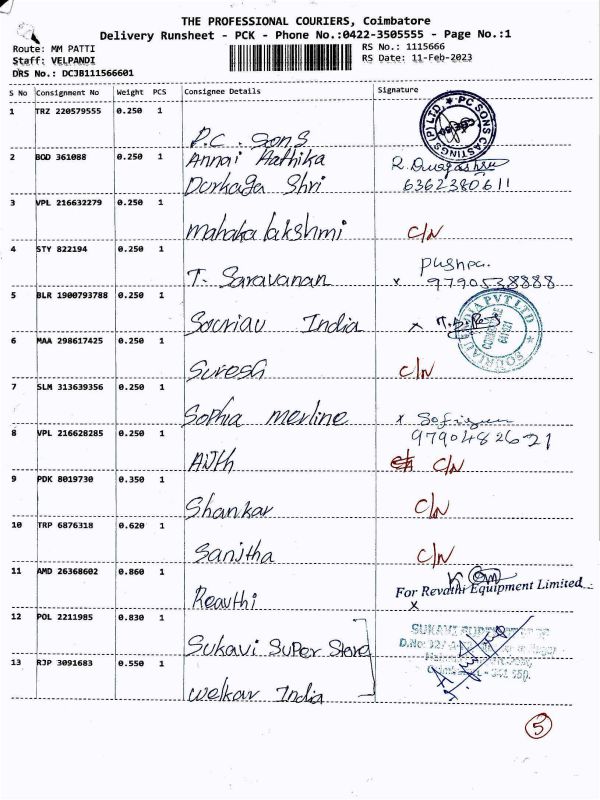 THE PROFESSIONAL COURIERS, Coimbatore
Delivery Runsheet - PCK - Phone No.:0422-3505555 - Page No.:1
Route: MM PATTI
RS No.: 1115666
Staff: VELPANDI
RS Date: 11-Feb-2023
DRS No.: DCJB111566601
S No Consignment No Weight PCS Consignee Details Signature
1 TRZ 220579555 0.250 1 P.C. Sons
PC SONS CASTINGS (P) LTD
2 BOD 361088 0.250 1 Annai Hathika
Darkaga Shri
6362380611
3 VPL 216632279 0.250 1 mahaka lakshmi C/N
4 STY 822194 0.250 1 T. Saravanan pushpa.
x 9790538888
5 BLR 1900793788 0.250 1 Souriau India x
SOURIAU INDIA PVT LTD
6 MAA 298617425 0.250 1 Suresh C/N
7 SLM 313639356 0.250 1 Sophia merline x
9790482621
8 VPL 216628285 0.250 1 Ajith C/N
9 PDK 8019730 0.350 1 Shankar C/N
10 TRP 6876318 0.620 1 Sanjtha C/N
11 AMD 26368602 0.860 1 Reavthi
For Revathi Equipment Limited
x
12 POL 2211985 0.830 1 Sukavi Super Store
SUKAVI
D.No:
13 RJP 3091683 0.550 1 welkar India
5